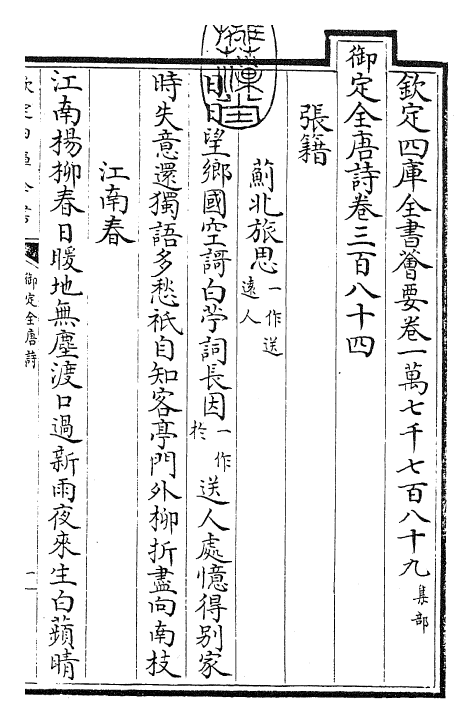 欽定四庫全書薈要卷一萬七千七百八十九集部
御定全唐詩卷三百八十四
張籍
薊北旅思一作送遠人
日日望鄉國空謌白苧詞長因一作於送人處憶得别家
時失意還獨語多愁祇自知客亭門外柳折盡向南枝
江南春
江南楊柳春日暖地無塵渡口過新雨夜來生白蘋晴
御定全唐詩